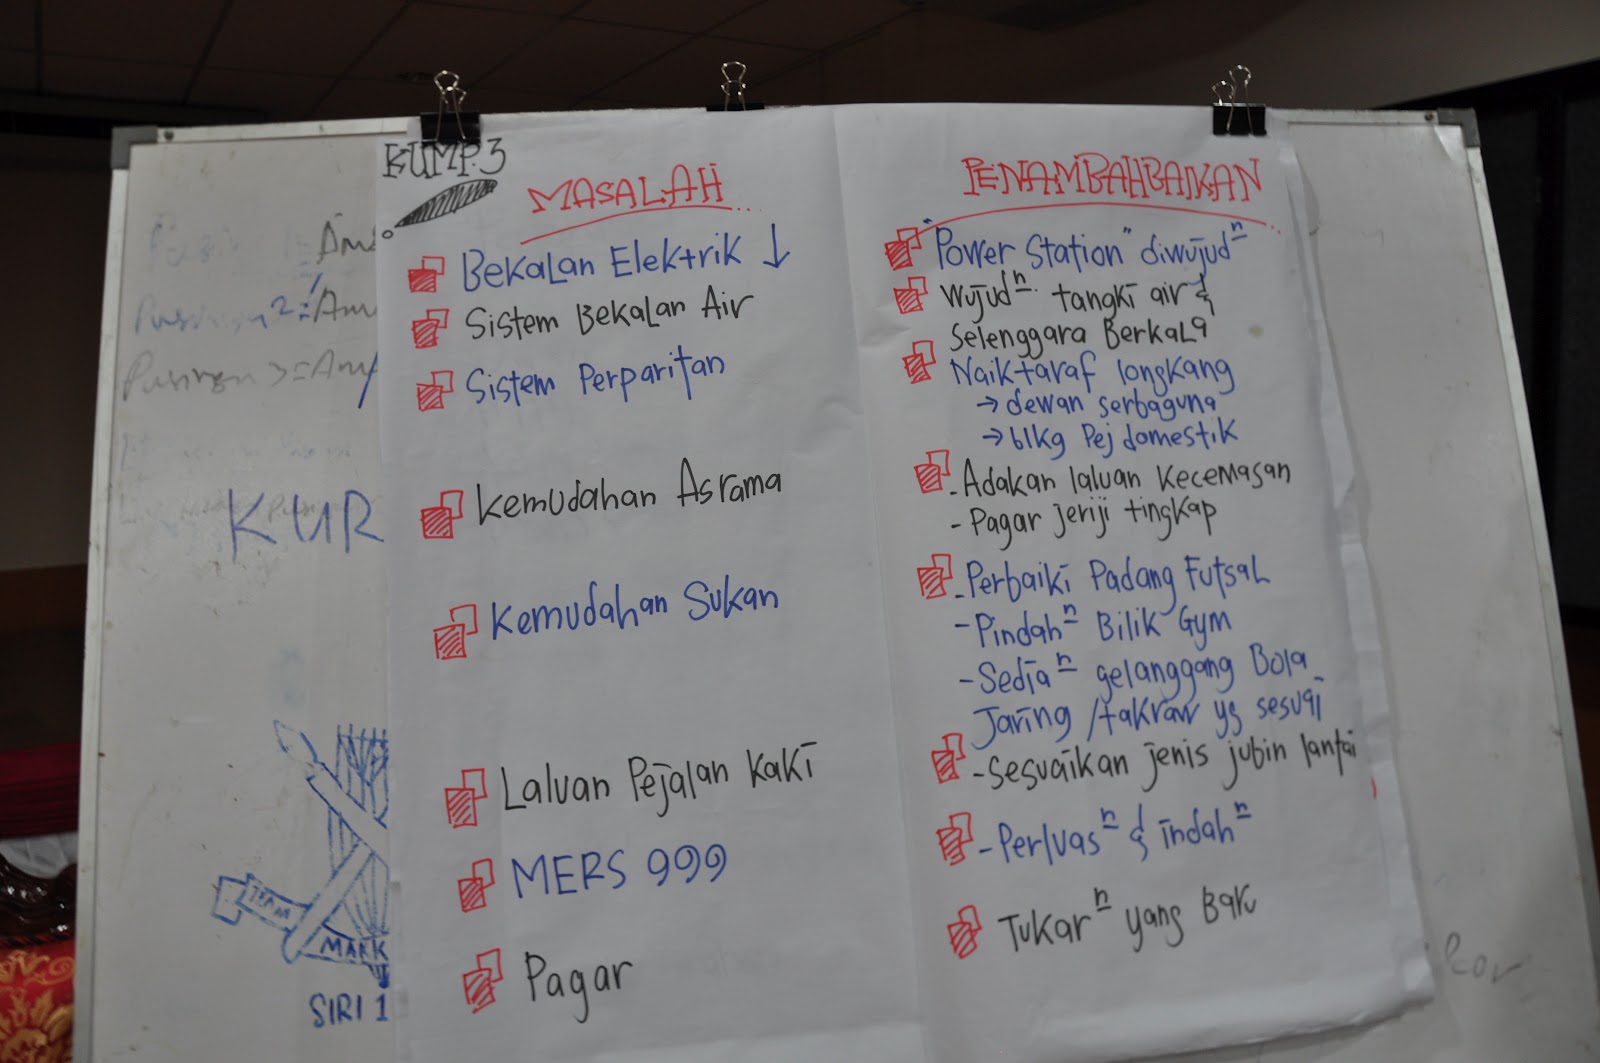 KUMP. 3
MASALAH
Bekalan Elektrik ↓
Sistem Bekalan Air
Sistem Perparitan
Kemudahan Asrama
Kemudahan Sukan
Laluan Pejalan Kaki
MERS 999
Pagar
PENAMBAHBAIKAN
"Power Station" diwujudⁿ
Wujudⁿ tangki air &
Selenggara Berkala
Naiktaraf longkang
→ dewan serbaguna
→ blkg Pej domestik
- Adakan laluan Kecemasan
- Pagar jeriji tingkap
- Perbaiki Padang Futsal
- Pindahⁿ Bilik Gym
- Sediaⁿ gelanggang Bola
Jaring /takraw yg sesuai
- Sesuaikan jenis jubin lantai
- Perluasⁿ & indahⁿ
Tukarⁿ yang Baru
KUR
TEAM
MARK
SIRI 1